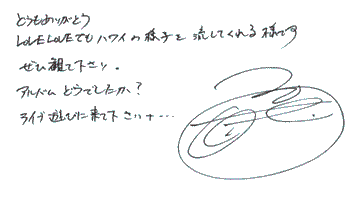 どうもありがとう
LOVE LOVEでもハワイの様子を流してくれる様です
ぜひ観て下さい.
アルバムどうでしたか?
ライブ遊びに来て下さいナ…